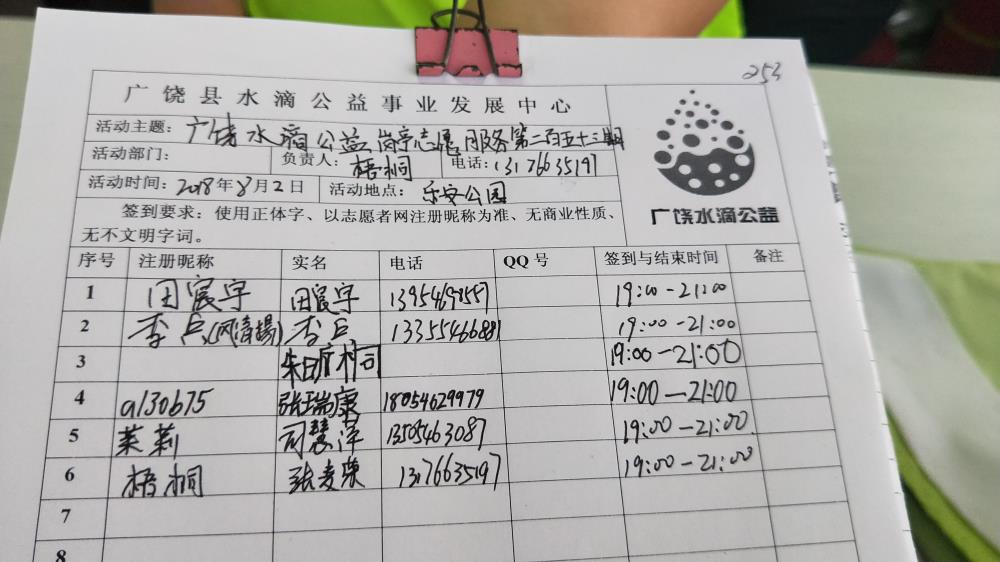 253
广饶县水滴公益事业发展中心
活动主题：广饶水滴公益岗亭志愿服务第二百五十三期
活动部门： 负责人：梧桐 电话：13176635197
活动时间：2018年8月2日 活动地点：乐安公园
签到要求：使用正体字、以志愿者网注册昵称为准、无商业性质、
无不文明字词。
广饶水滴公益
序号 注册昵称 实名 电话 QQ号 签到与结束时间 备注
1 田宸宇 田宸宇 19:00-21:00
2 李兵(风清扬) 李兵 13355466881 19:00-21:00
3 19:00-21:00
4 a130675 张瑞康 18054629979 19:00-21:00
5 茉莉 司慧萍 13505463087 19:00-21:00
6 梧桐 13176635197 19:00-21:00
7
8